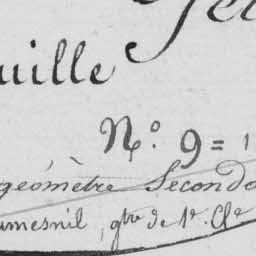 uille
N.º 9 = 1
géomètre Second
umesnil, gtre de 1e. Cle